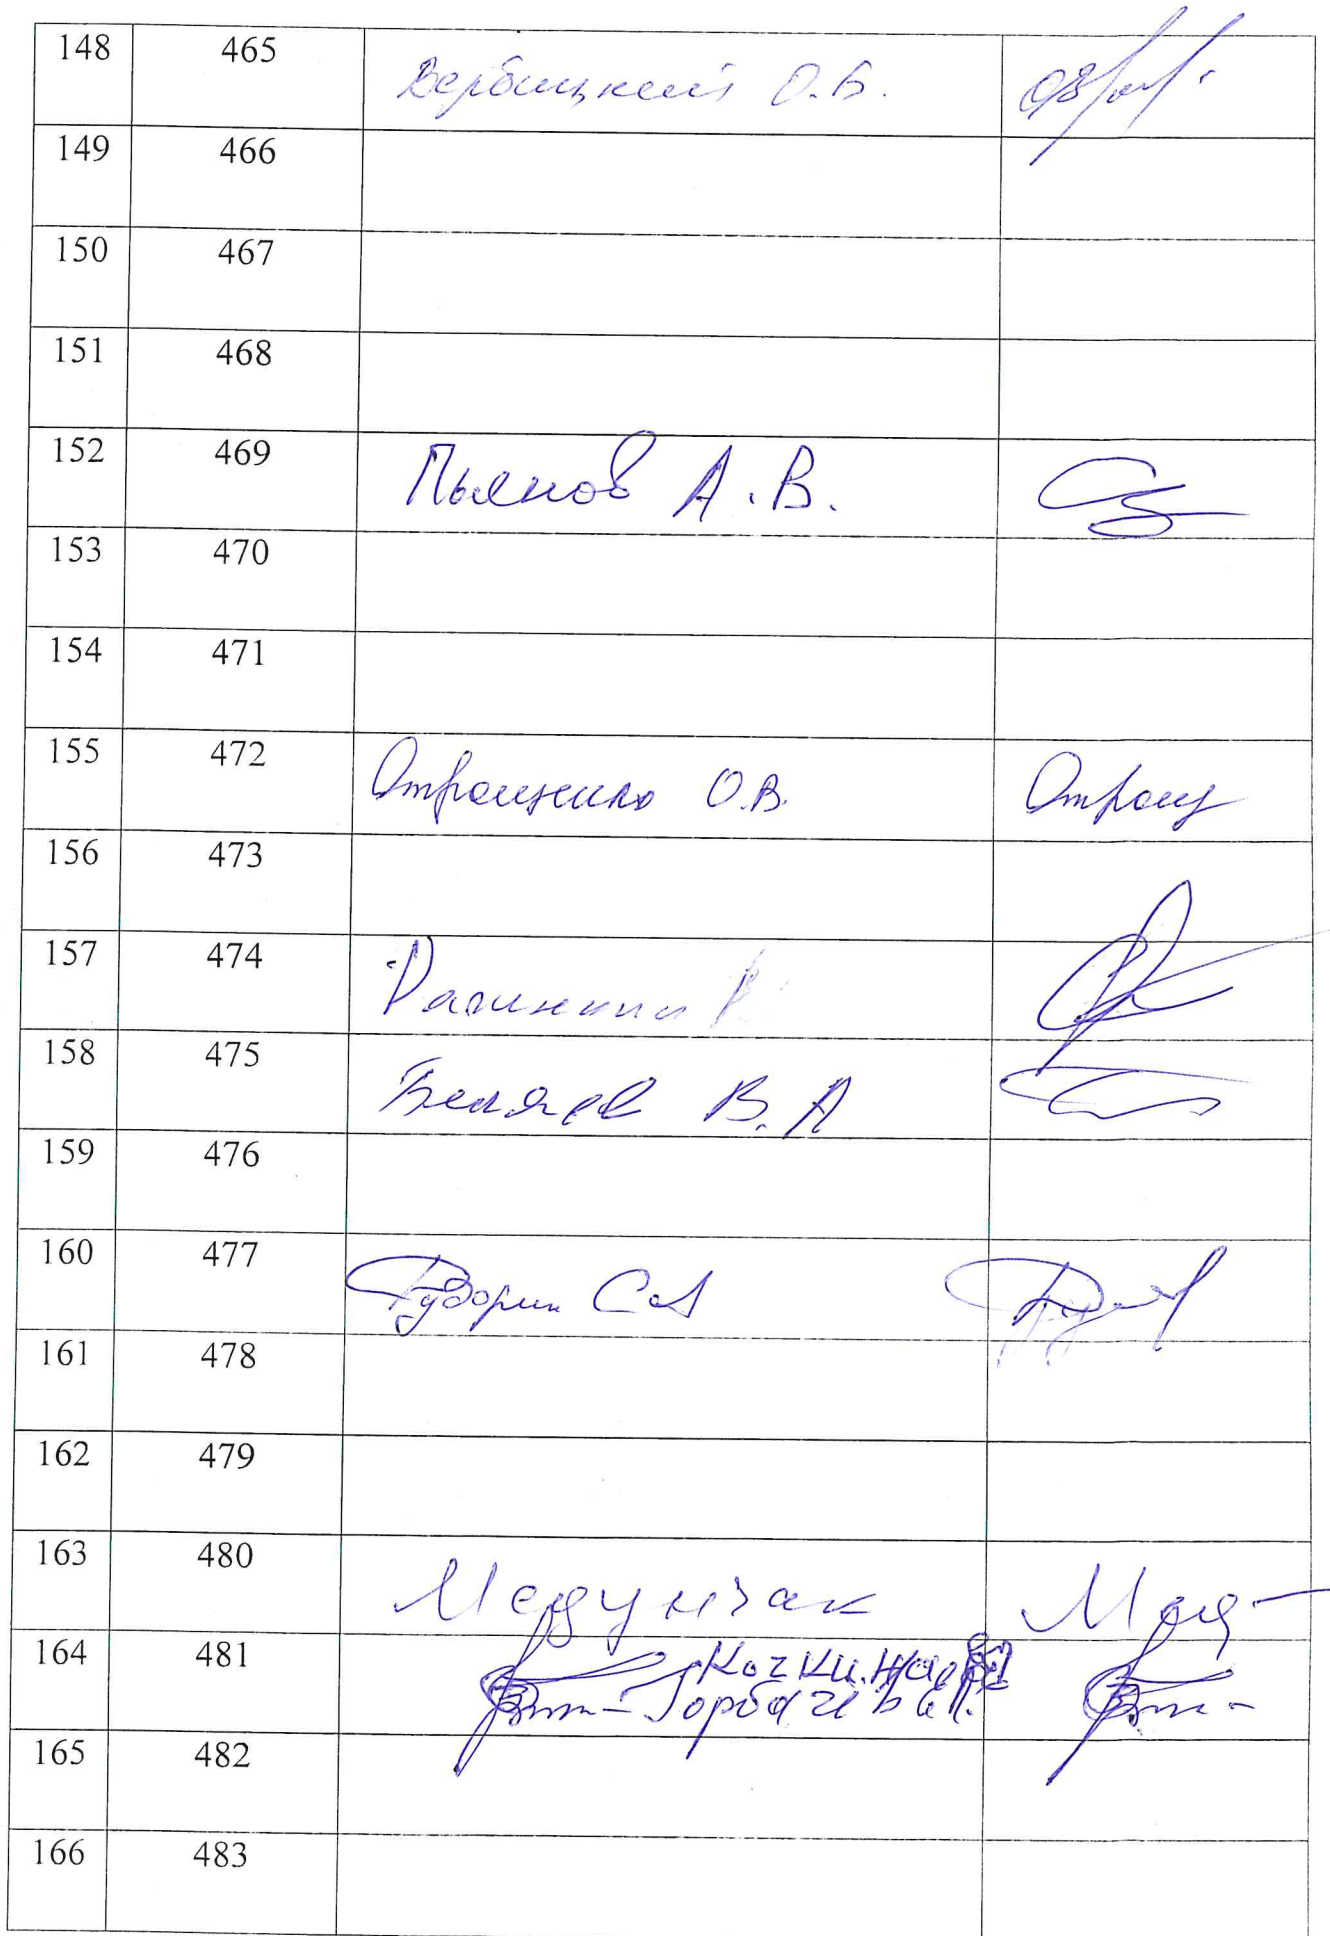 148 465 Вербицкий О.Б.
149 466
150 467
151 468
152 469 Пьянов А.В.
153 470
154 471
155 472 Отрощенко О.В. Отрощ
156 473
157 474
158 475 Беляев В.А
159 476
160 477 Гудорин С.А
161 478
162 479
163 480 Медунчак
164 481 Кочкина
Горбачева
165 482
166 483